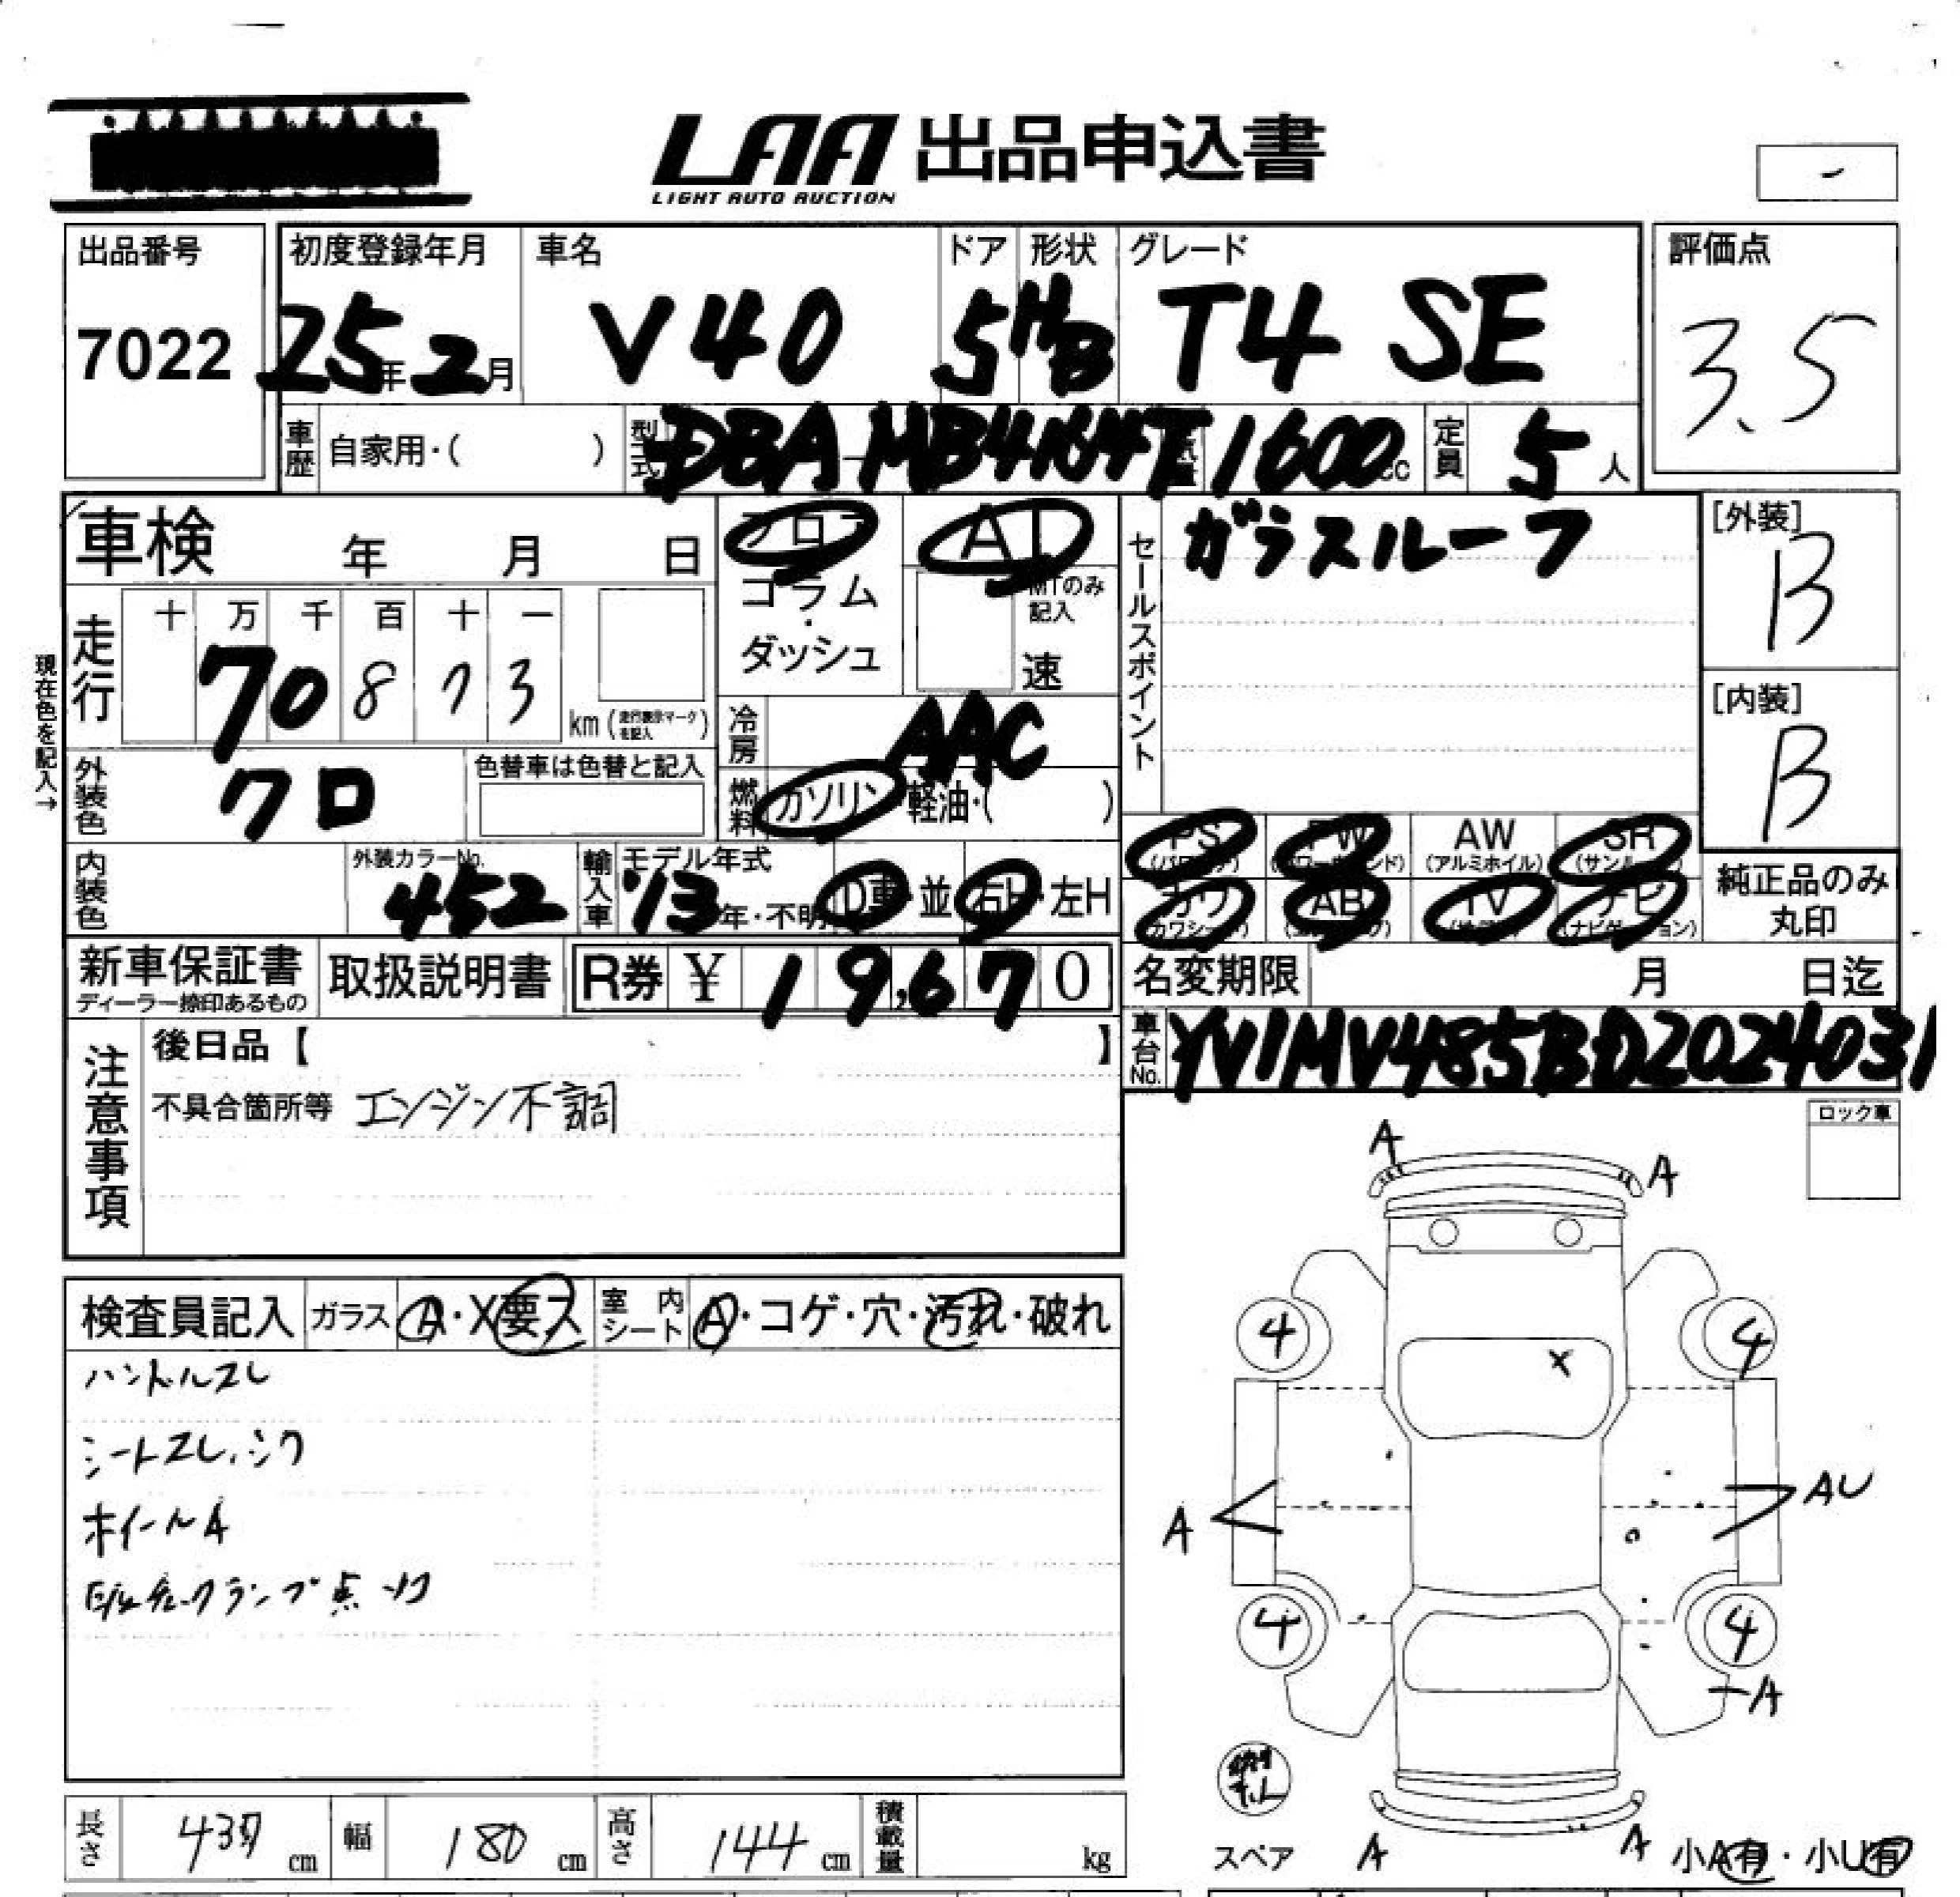 LAA 出品申込書
LIGHT AUTO AUCTION
-
出品番号 初度登録年月 車名 ドア 形状 グレード 評価点
7022 25年2月 V40 5 HB T4 SE 3.5
車歴 自家用・( ) 型式 DBA MB4164T 1600cc 定員 5人
車検 年 月 日 フロア AT セールスポイント ガラスルーフ [外装] B
コラム・ダッシュ MTのみ記入 速
現在色を記入→
走行 十 万 千 百 十 一
7 0 8 7 3 km (走行表示マークを記入)
冷房 AAC [内装] B
外装色 クロ 色替車は色替と記入 燃料 ガソリン・軽油・( )
PS (パワステ) PW (パワーウィンド) AW (アルミホイル) SR (サンルーフ)
内装色 外装カラーNo. 452 輸入車 モデル年式 '13年・不明 D車・並 右H・左H
カワ (カワシート) AB (エアバッグ) TV (テレビ) ナビ (ナビゲーション) 純正品のみ丸印
新車保証書 ディーラー捺印あるもの 取扱説明書 R券 ¥ 19,670 名変期限 月 日迄
注意事項 後日品【 】 車台No. YV1MV485BD2024031
不具合箇所等 エンジン不調
ロック車
A A
検査員記入 ガラス A・X要ス 室内シート A・コゲ・穴・汚れ・破れ
4 4
X
ハンドルスレ
シートスレ、シワ
ホイールA
チェックランプ点灯
A AU
4 4
A
スペア A A 小A有・小U有
長さ 437 cm 幅 180 cm 高さ 144 cm 積載量 kg